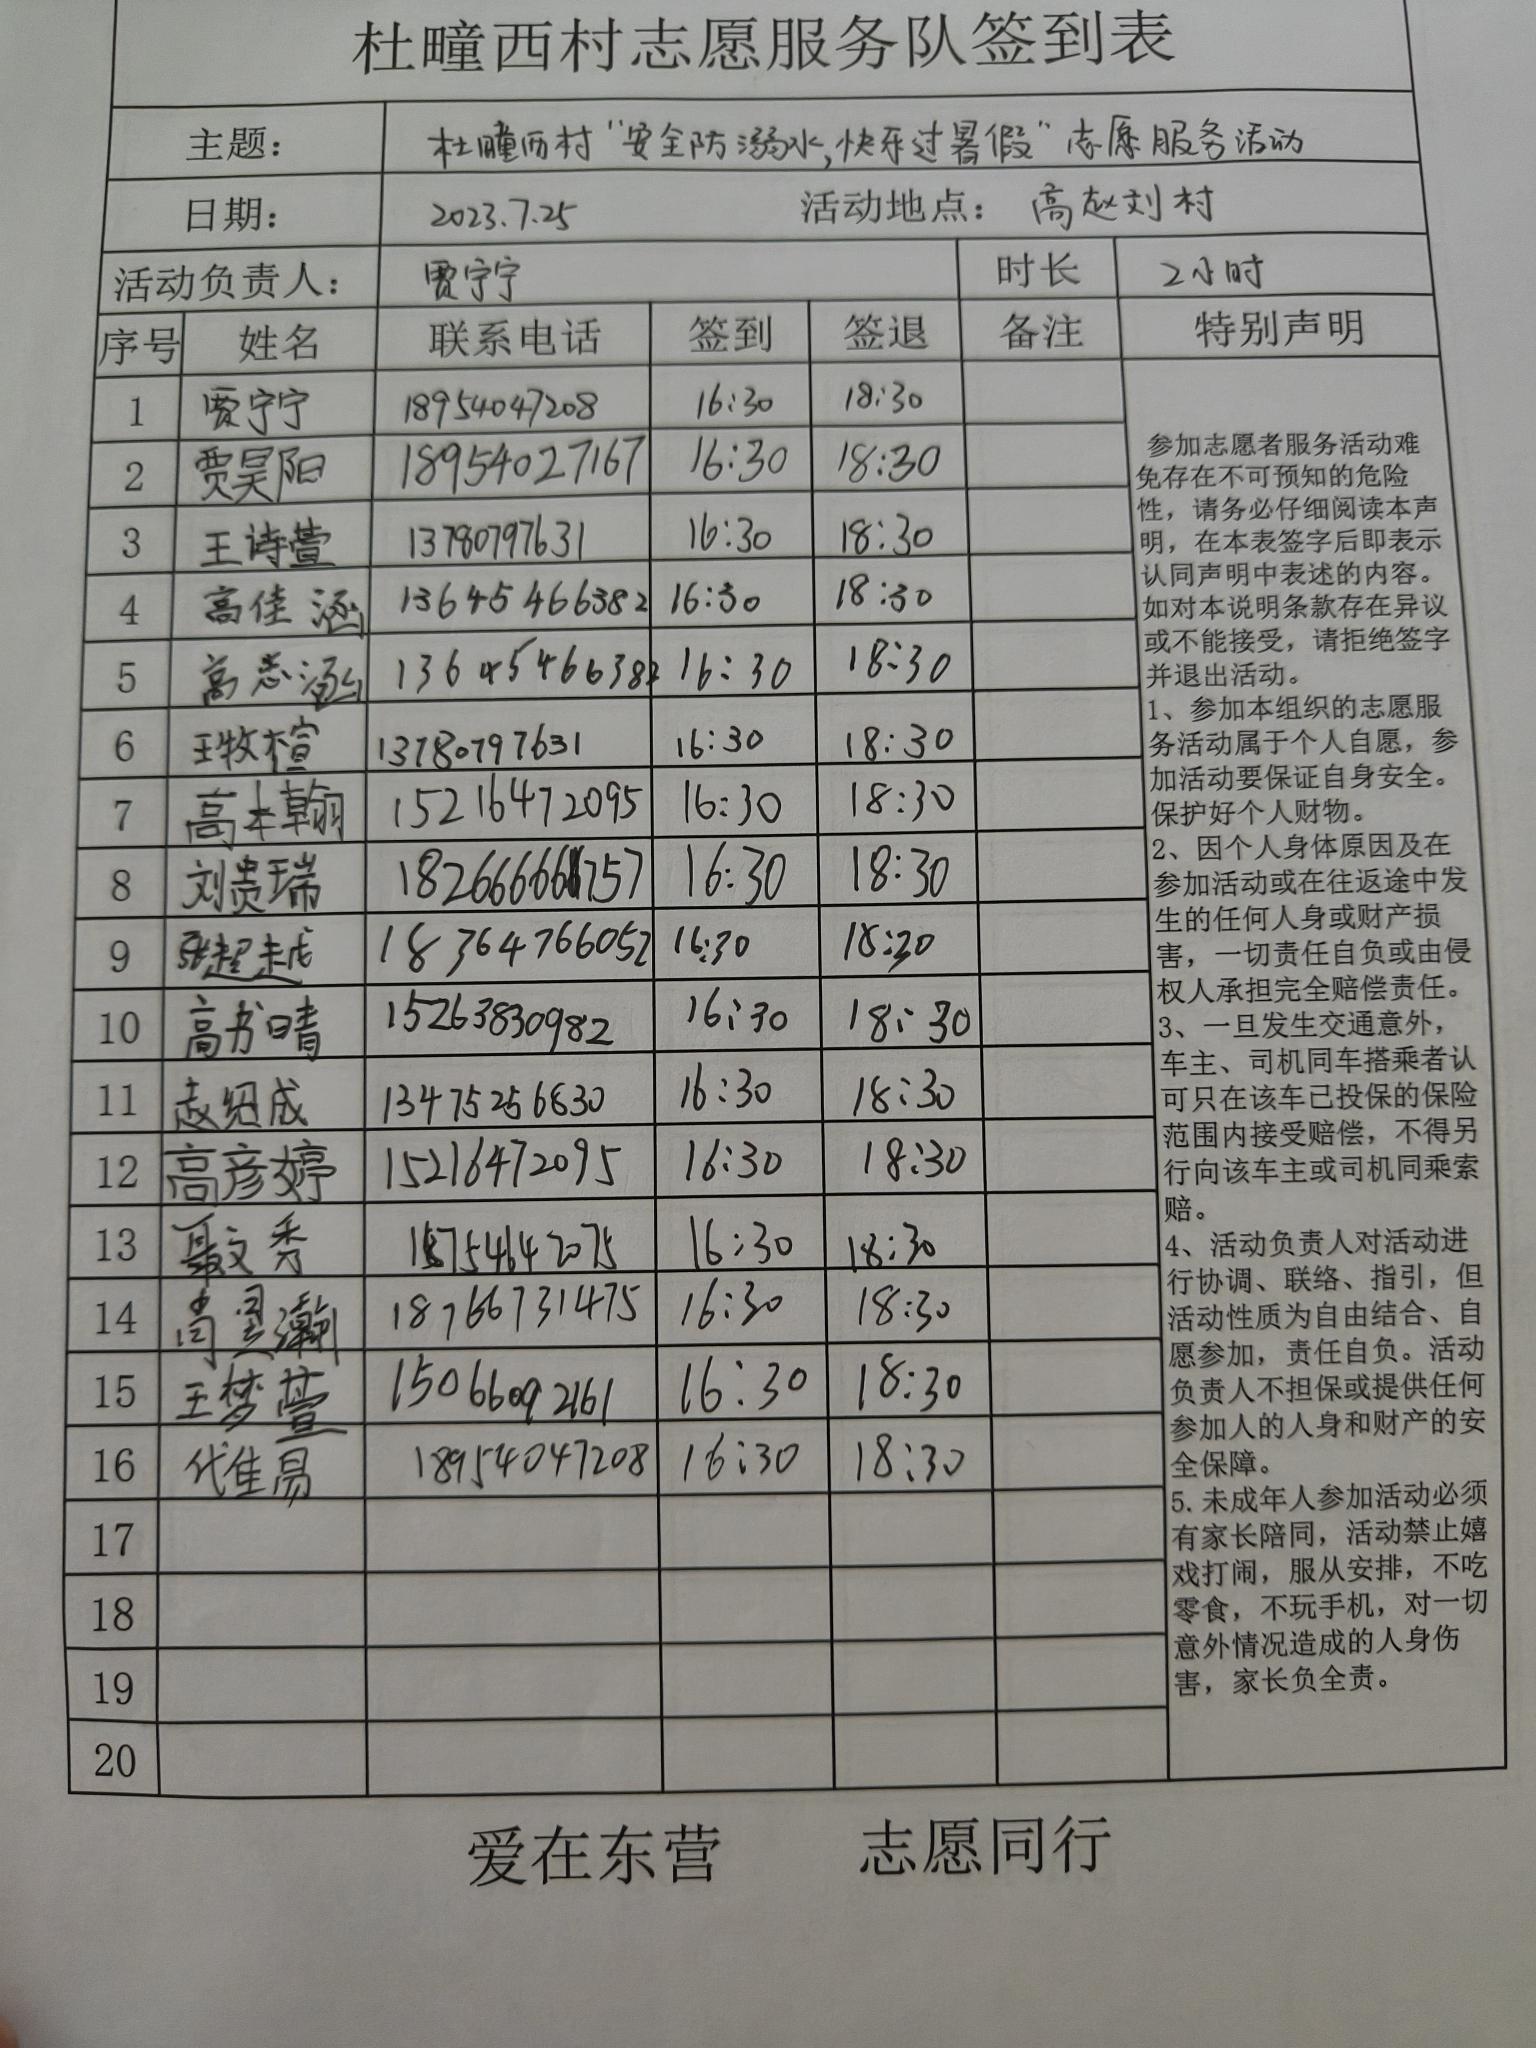 杜疃西村志愿服务队签到表
主题： 杜疃西村“安全防溺水,快乐过暑假”志愿服务活动
日期： 2023.7.25 活动地点： 高赵刘村
活动负责人： 贾宁宁 时长 2小时
序号 姓名 联系电话 签到 签退 备注 特别声明
1 贾宁宁 18954047208 16:30 18:30
2 贾昊阳 18954027167 16:30 18:30
3 王诗萱 13780797631 16:30 18:30
4 高佳涵 13645466382 16:30 18:30
5 高志涵 13645466382 16:30 18:30
6 王牧楦 13780797631 16:30 18:30
7 高本翰 15216472095 16:30 18:30
8 刘贵瑞 16:30 18:30
9 张超 18364766052 16:30 18:30
10 高书晴 15263830982 16:30 18:30
11 赵 成 13475256830 16:30 18:30
12 高彦婷 15216472095 16:30 18:30
13 聂文秀 16:30 18:30
14 18766731475 16:30 18:30
15 王梦萱 15066092161 16:30 18:30
16 代佳易 18954047208 16:30 18:30
17
18
19
20
参加志愿者服务活动难
免存在不可预知的危险
性，请务必仔细阅读本声
明，在本表签字后即表示
认同声明中表述的内容。
如对本说明条款存在异议
或不能接受，请拒绝签字
并退出活动。
1、参加本组织的志愿服
务活动属于个人自愿，参
加活动要保证自身安全。
保护好个人财物。
2、因个人身体原因及在
参加活动或在往返途中发
生的任何人身或财产损
害，一切责任自负或由侵
权人承担完全赔偿责任。
3、一旦发生交通意外，
车主、司机同车搭乘者认
可只在该车已投保的保险
范围内接受赔偿，不得另
行向该车主或司机同乘索
赔。
4、活动负责人对活动进
行协调、联络、指引，但
活动性质为自由结合、自
愿参加，责任自负。活动
负责人不担保或提供任何
参加人的人身和财产的安
全保障。
5.未成年人参加活动必须
有家长陪同，活动禁止嬉
戏打闹，服从安排，不吃
零食，不玩手机，对一切
意外情况造成的人身伤
害，家长负全责。
爱在东营 志愿同行